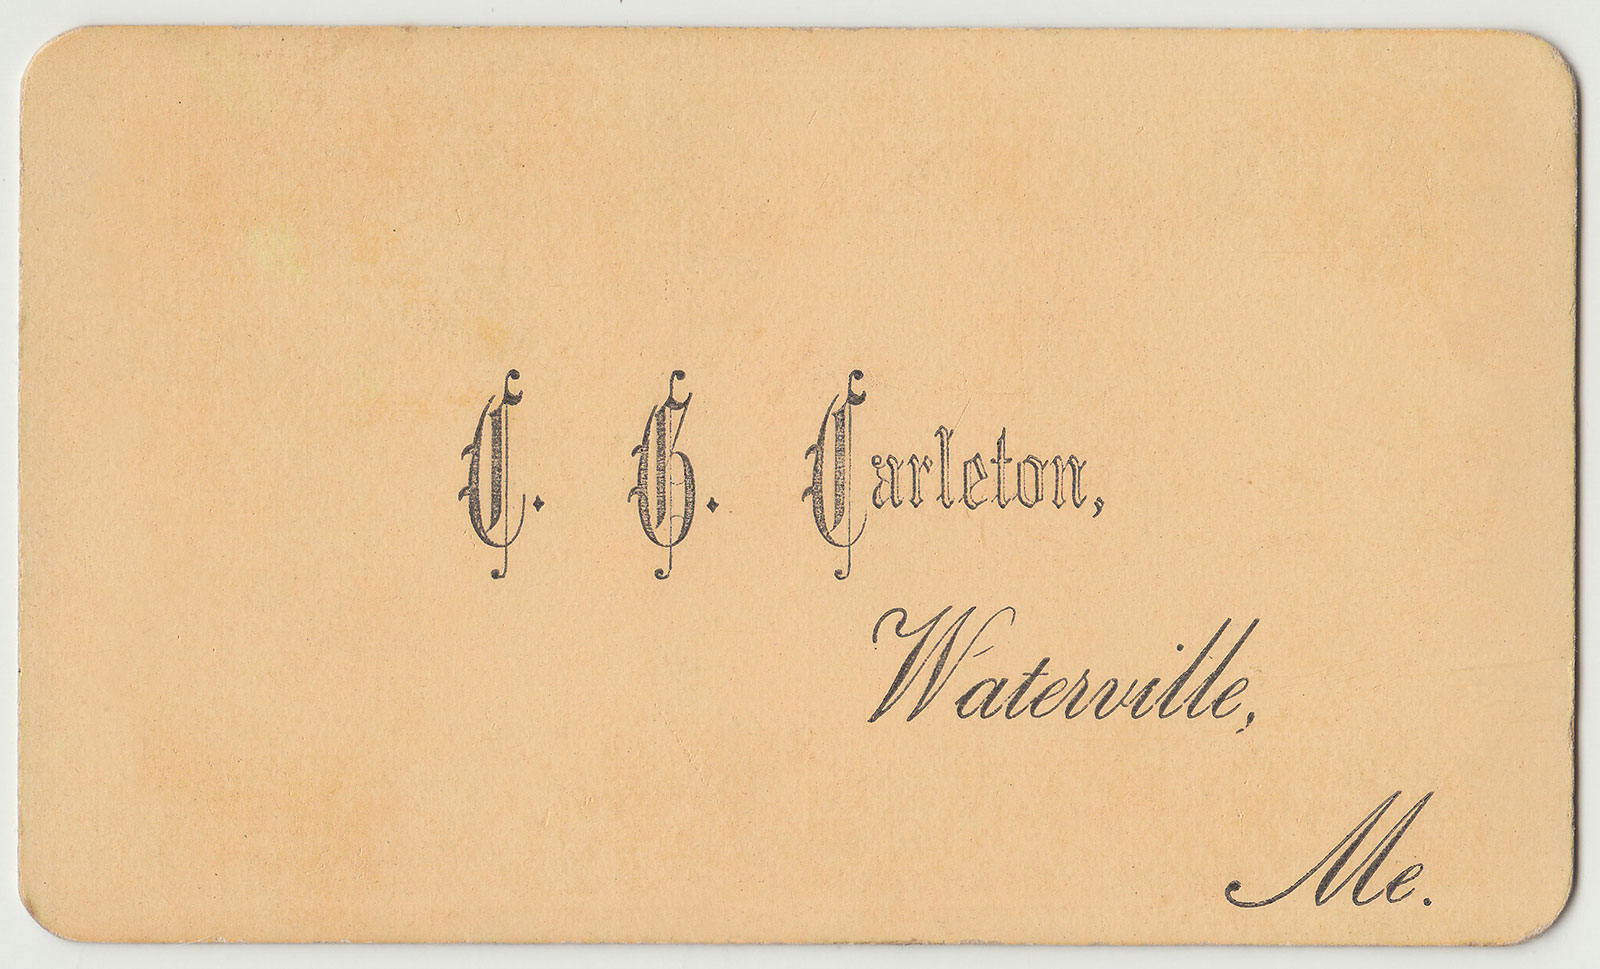 C. G. Carleton,
Waterville,
Me.